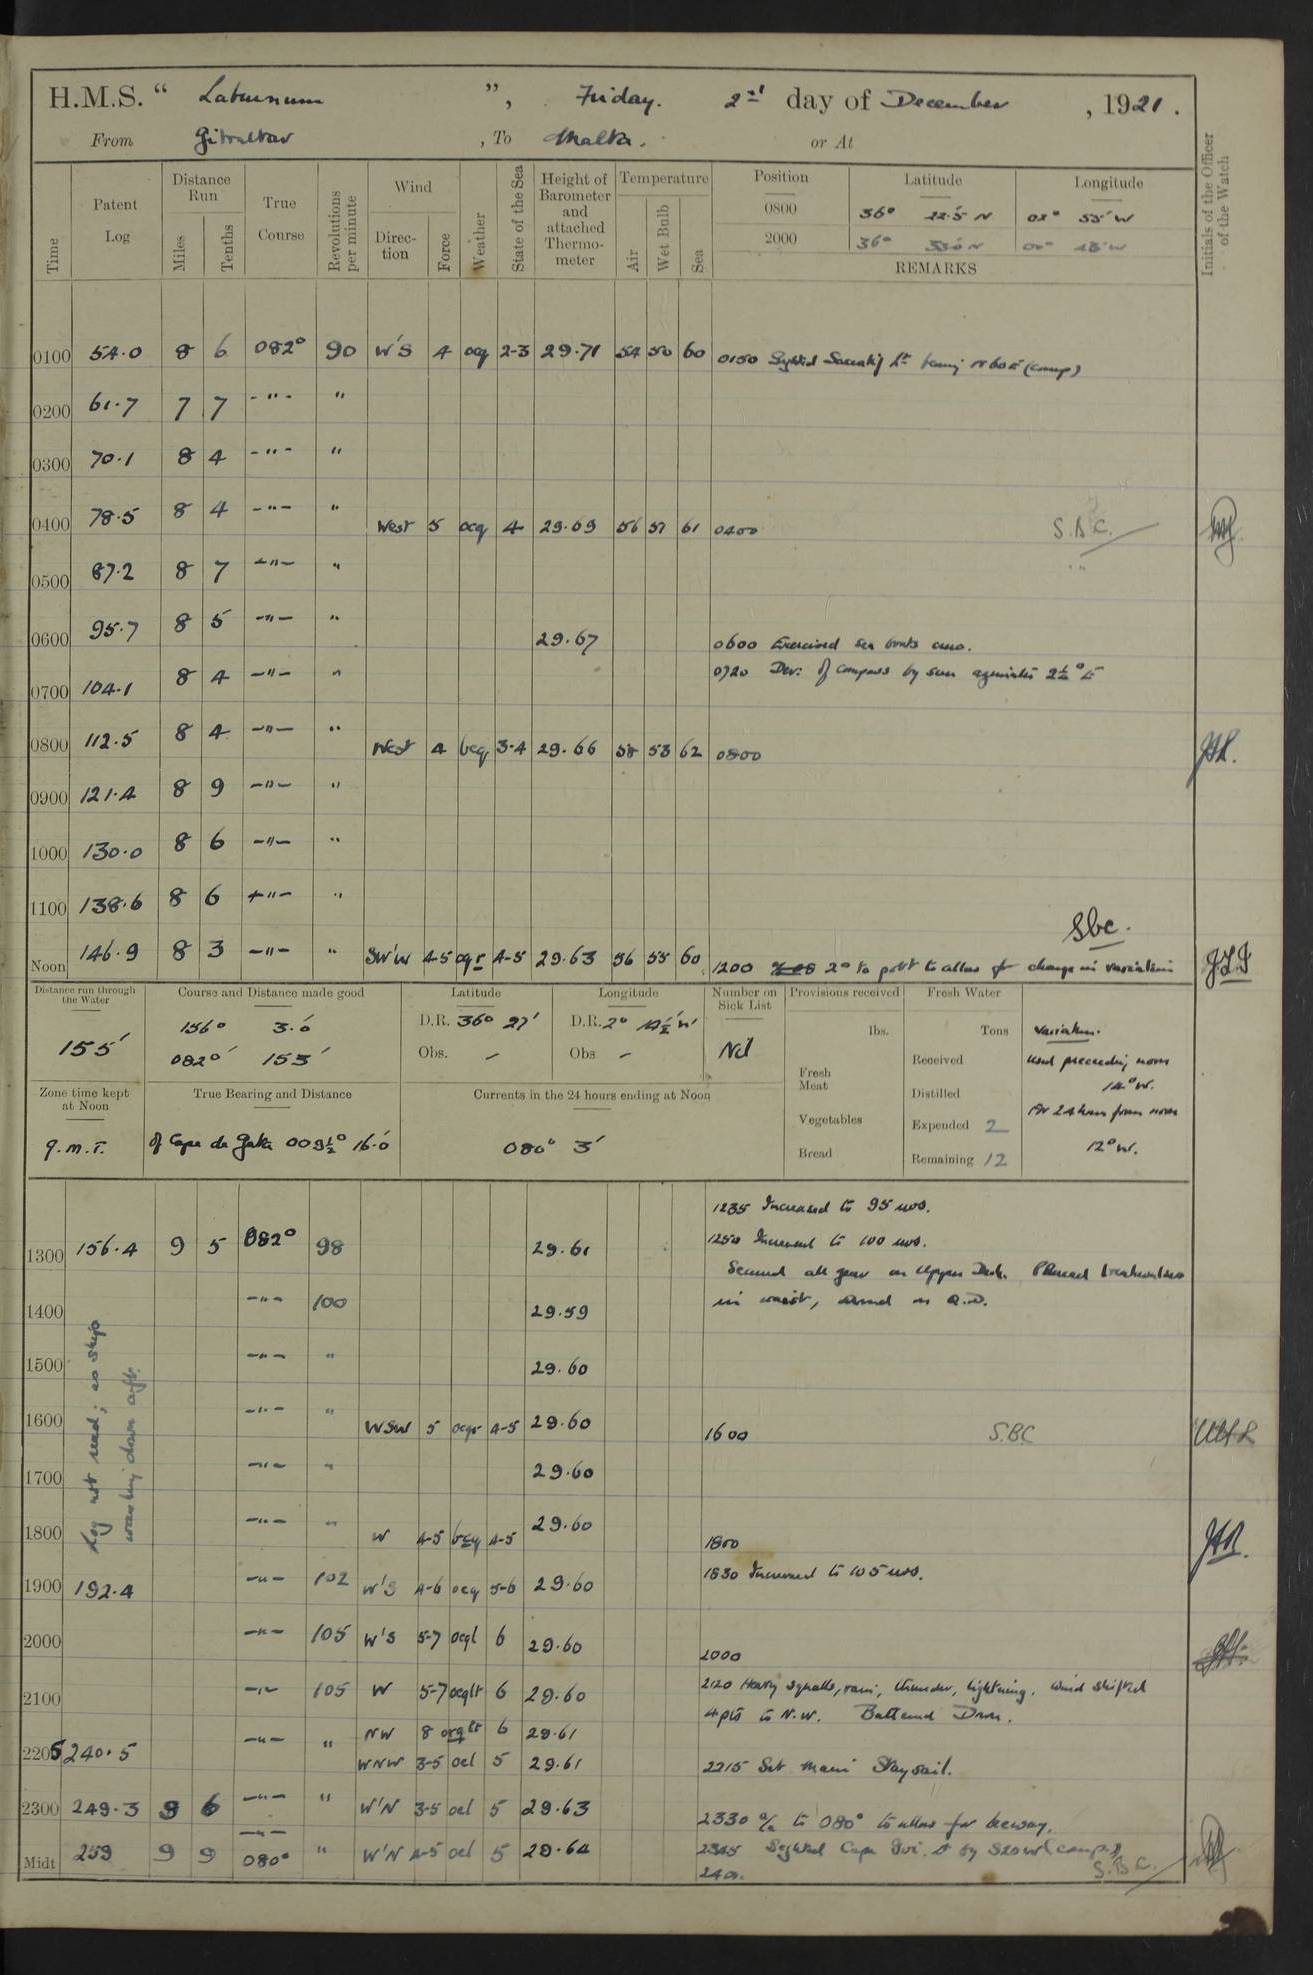 H.M.S. " Laburnum ", Friday. 2nd day of December , 1921.
From Gibraltar , To Malta. or At
Time
Patent Log
Distance Run
Miles
Tenths
True Course
Revolutions per minute
Wind
Direction
Force
Weather
State of the Sea
Height of Barometer and attached Thermometer
Temperature
Air
Wet Bulb
Sea
Position Latitude Longitude
0800 36° 22.5 N 02° 55' W
2000 36°
REMARKS
Initials of the Officer of the Watch
0100 54.0 8 6 082° 90 W'S 4 ocq 2-3 29.71 54 50 60 0150 Sighted Sacratif Lt N60E (comp)
0200 61.7 7 7 -"- "
0300 70.1 8 4 -"- "
0400 78.5 8 4 -"- " West 5 ocq 4 29.69 56 51 61 0400 S.B.C.
0500 87.2 8 7 -"- "
0600 95.7 8 5 -"- " 29.67 0600 Exercised sea boats crew.
0700 104.1 8 4 -"- " 0720 Dev: of compass by sun azimuths 2½° E
0800 112.5 8 4 -"- " West 4 bcq 3-4 29.66 58 53 62 0800
0900 121.4 8 9 -"- "
1000 130.0 8 6 -"- "
1100 138.6 8 6 -"- "
Sbc.
Noon 146.9 8 3 -"- " SW'W 4-5 oqr 4-5 29.63 56 55 60 1200 2° to port to allow for change in variation
Distance run through the Water
155'
Course and Distance made good
156° 3.0'
082° 153'
Latitude
D.R. 36° 27'
Obs. -
Longitude
D.R. 2° 12½' W
Obs -
Number on Sick List
Nil
Provisions received
lbs.
Fresh Meat
Vegetables
Bread
Fresh Water
Tons
Received
Distilled
Expended 2
Remaining 12
Variation.
Used preceeding noon
14° W.
For 24 hours from noon
12° W.
Zone time kept at Noon
g.m.t.
True Bearing and Distance
of Cape de Gata 009½° 16.0'
Currents in the 24 hours ending at Noon
080° 3'
1235 Increased to 95 revs.
1300 156.4 9 5 082° 98 29.61 1250 Increased to 100 revs.
Secured all gear on Upper Deck. Placed breakwaters
1400 -"- 100 29.59 in waist, on Q.D.
Log not read; as ship
washing down aft.
1500 -"- " 29.60
1600 -"- " WSW 5 ocqr 4-5 29.60 1600 S.B.C
1700 -"- " 29.60
1800 -"- " W 4-5 bcq 4-5 29.60 1800
1900 192.4 -"- 102 W'S 4-6 ocq 5-6 29.60 1830 Increased to 105 revs.
2000 -"- 105 W'S 5-7 ocql 6 29.60 2000
2100 -"- 105 W 5-7 ocqlt 6 29.60 2120 Heavy squalls, rain, thunder, lightning. Wind shifted
4 pts to N.W. Battened Down.
NW 8 orqlt 6 29.61
2205 240.5 -"- " WNW 3-5 ocl 5 29.61 2215 Set Main Staysail.
2300 249.3 9 6 -"- " W'N 3-5 ocl 5 29.63
2330 a/c to 080° to allow for leeway.
Midt 259 9 9 080° " W'N 4-5 ocl 5 29.64 2345 Sighted Cape Ivi. Lt by S20W (comp)
2400. S.B.C.